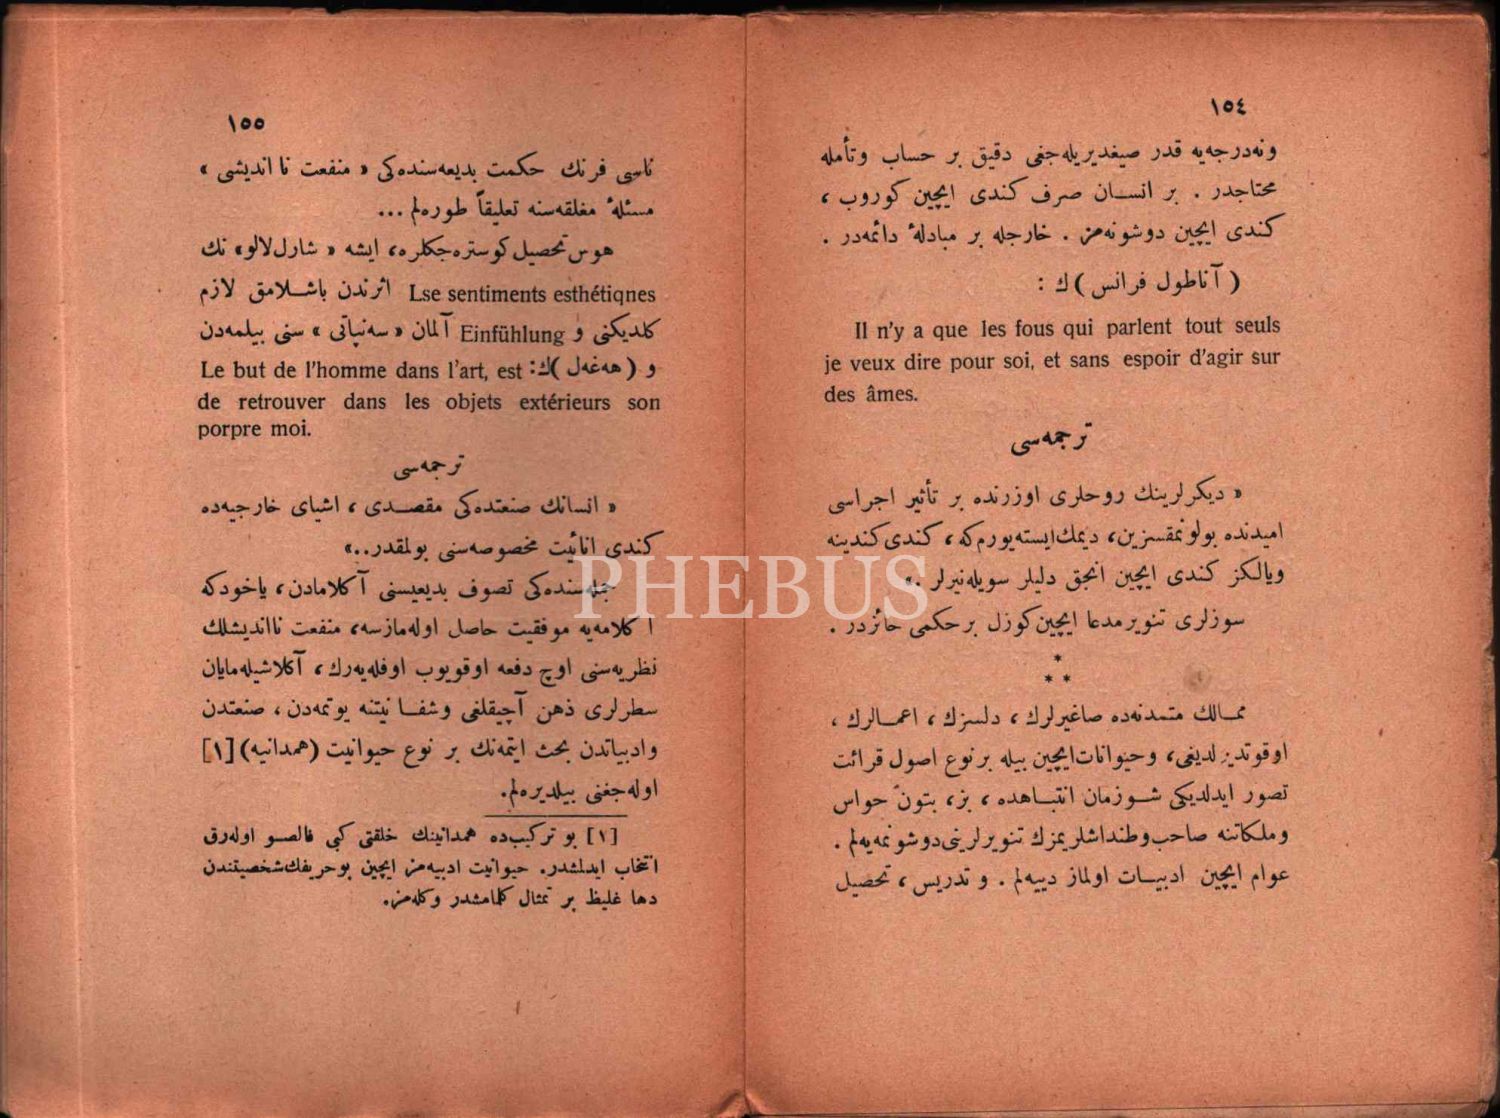 ١٥٤
ونه‌درجه‌یه قدر صیغدیریله‌جغی دقیق بر حساب وتأمله
محتاجدر . بر انسان صرف کندی ایچین کوروب ،
کندی ایچین دوشونه‌مز . خارجله بر مبادلهٔ دائمه‌در .
( آناطول فرانس ) ك :
Il n'y a que les fous qui parlent tout seuls
je veux dire pour soi, et sans espoir d'agir sur
des âmes.
ترجمه‌سی
« دیکرلرینك روحلری اوزرنده بر تأثیر اجراسی
امیدنده بولونمقسزین، دیمك‌ایسته‌یورم‌که، کندی‌کندینه
ویالکز کندی ایچین انجق دلیلر سویله‌نیرلر .»
سوزلری تنویر مدعا ایچین کوزل بر حکمی حائزدر .
*
* *
ممالك متمدنه‌ده صاغیرلرك ، دلسزك ، اعمالرك ،
اوقوتدیرلدیغی، وحیوانات‌ایچین بیله بر نوع اصول قرائت
تصور ایدلدیکی شوزمان انتباهده ، بز، بتون حواس
وملکاتنه صاحب‌وطنداشلریمزك تنویرلرینی‌دوشونمه‌یه‌لم .
عوام ایچین ادبیات اولماز دییه‌لم . و تدریس ، تحصیل
١٥٥
ناسی فرنك حکمت بدیعه‌سنده‌کی « منفعت نا اندیشی »
مسئلهٔ مغلقه‌سنه تعلیقاً طوره‌لم ...
هوس تحصیل کوستره‌جکلره، ایشه « شارل‌لالو» نك
Lse sentiments esthétiqnes اثرندن باشلامق لازم
کلدیکنی و Einfühlung آلمان « سه‌نپاتی » سنی بیلمه‌دن
و ( هه‌غه‌ل )ك: Le but de l'homme dans l'art, est
de retrouver dans les objets extérieurs son
porpre moi.
ترجمه‌سی
« انسانك صنعتده‌کی مقصدی ، اشیای خارجیه‌ده
کندی انائیت مخصوصه‌سنی بولمقدر..»
جمله‌سنده‌کی تصوف بدیعیسنی آکلامادن، یاخودکه
آکلامه‌یه موفقیت حاصل اوله‌مازسه، منفعت نااندیشلك
نظریه‌سنی اوچ دفعه اوقویوب اوفله‌یه‌رك ، آکلاشیله‌مایان
سطرلری ذهن آچیقلغی وشفا نیتنه یوتمه‌دن ، صنعتدن
وادبیاتدن بحث ایتمه‌نك بر نوع حیوانیت (همدانیه) [١]
اوله‌جغنی بیلدیره‌لم.
[١] بو ترکیب‌ده همدانینك خلقتی کبی فالصو اوله‌رق
انتخاب ایدلمشدر. حیوانیت ادبیه‌مز ایچین بوحریفك‌شخصیتندن
دها غلیظ بر تمثال کلمامشدر وکله‌مز.
PHEBUS